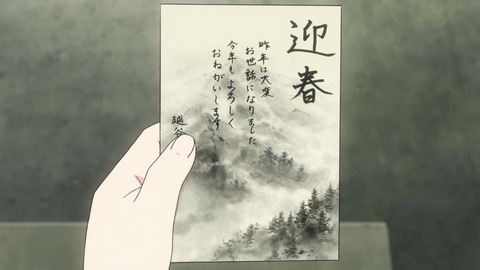 迎春
昨年は大変
お世話になりました
今年もよろしく
おねがいします
越谷